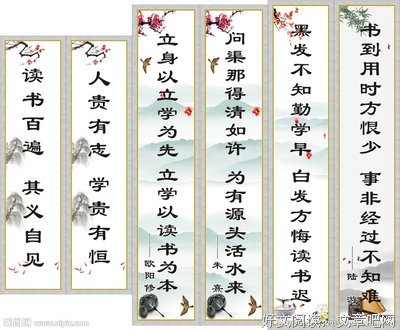 读书百遍 其义自见
人贵有志 学贵有恒
立身以立学为先 立学以读书为本
——欧阳修
问渠那得清如许 为有源头活水来
——朱熹
黑发不知勤学早 白发方悔读书迟
书到用时方恨少 事非经过不知难
——陆游
昵图网 www.nipic.com
文章吧网